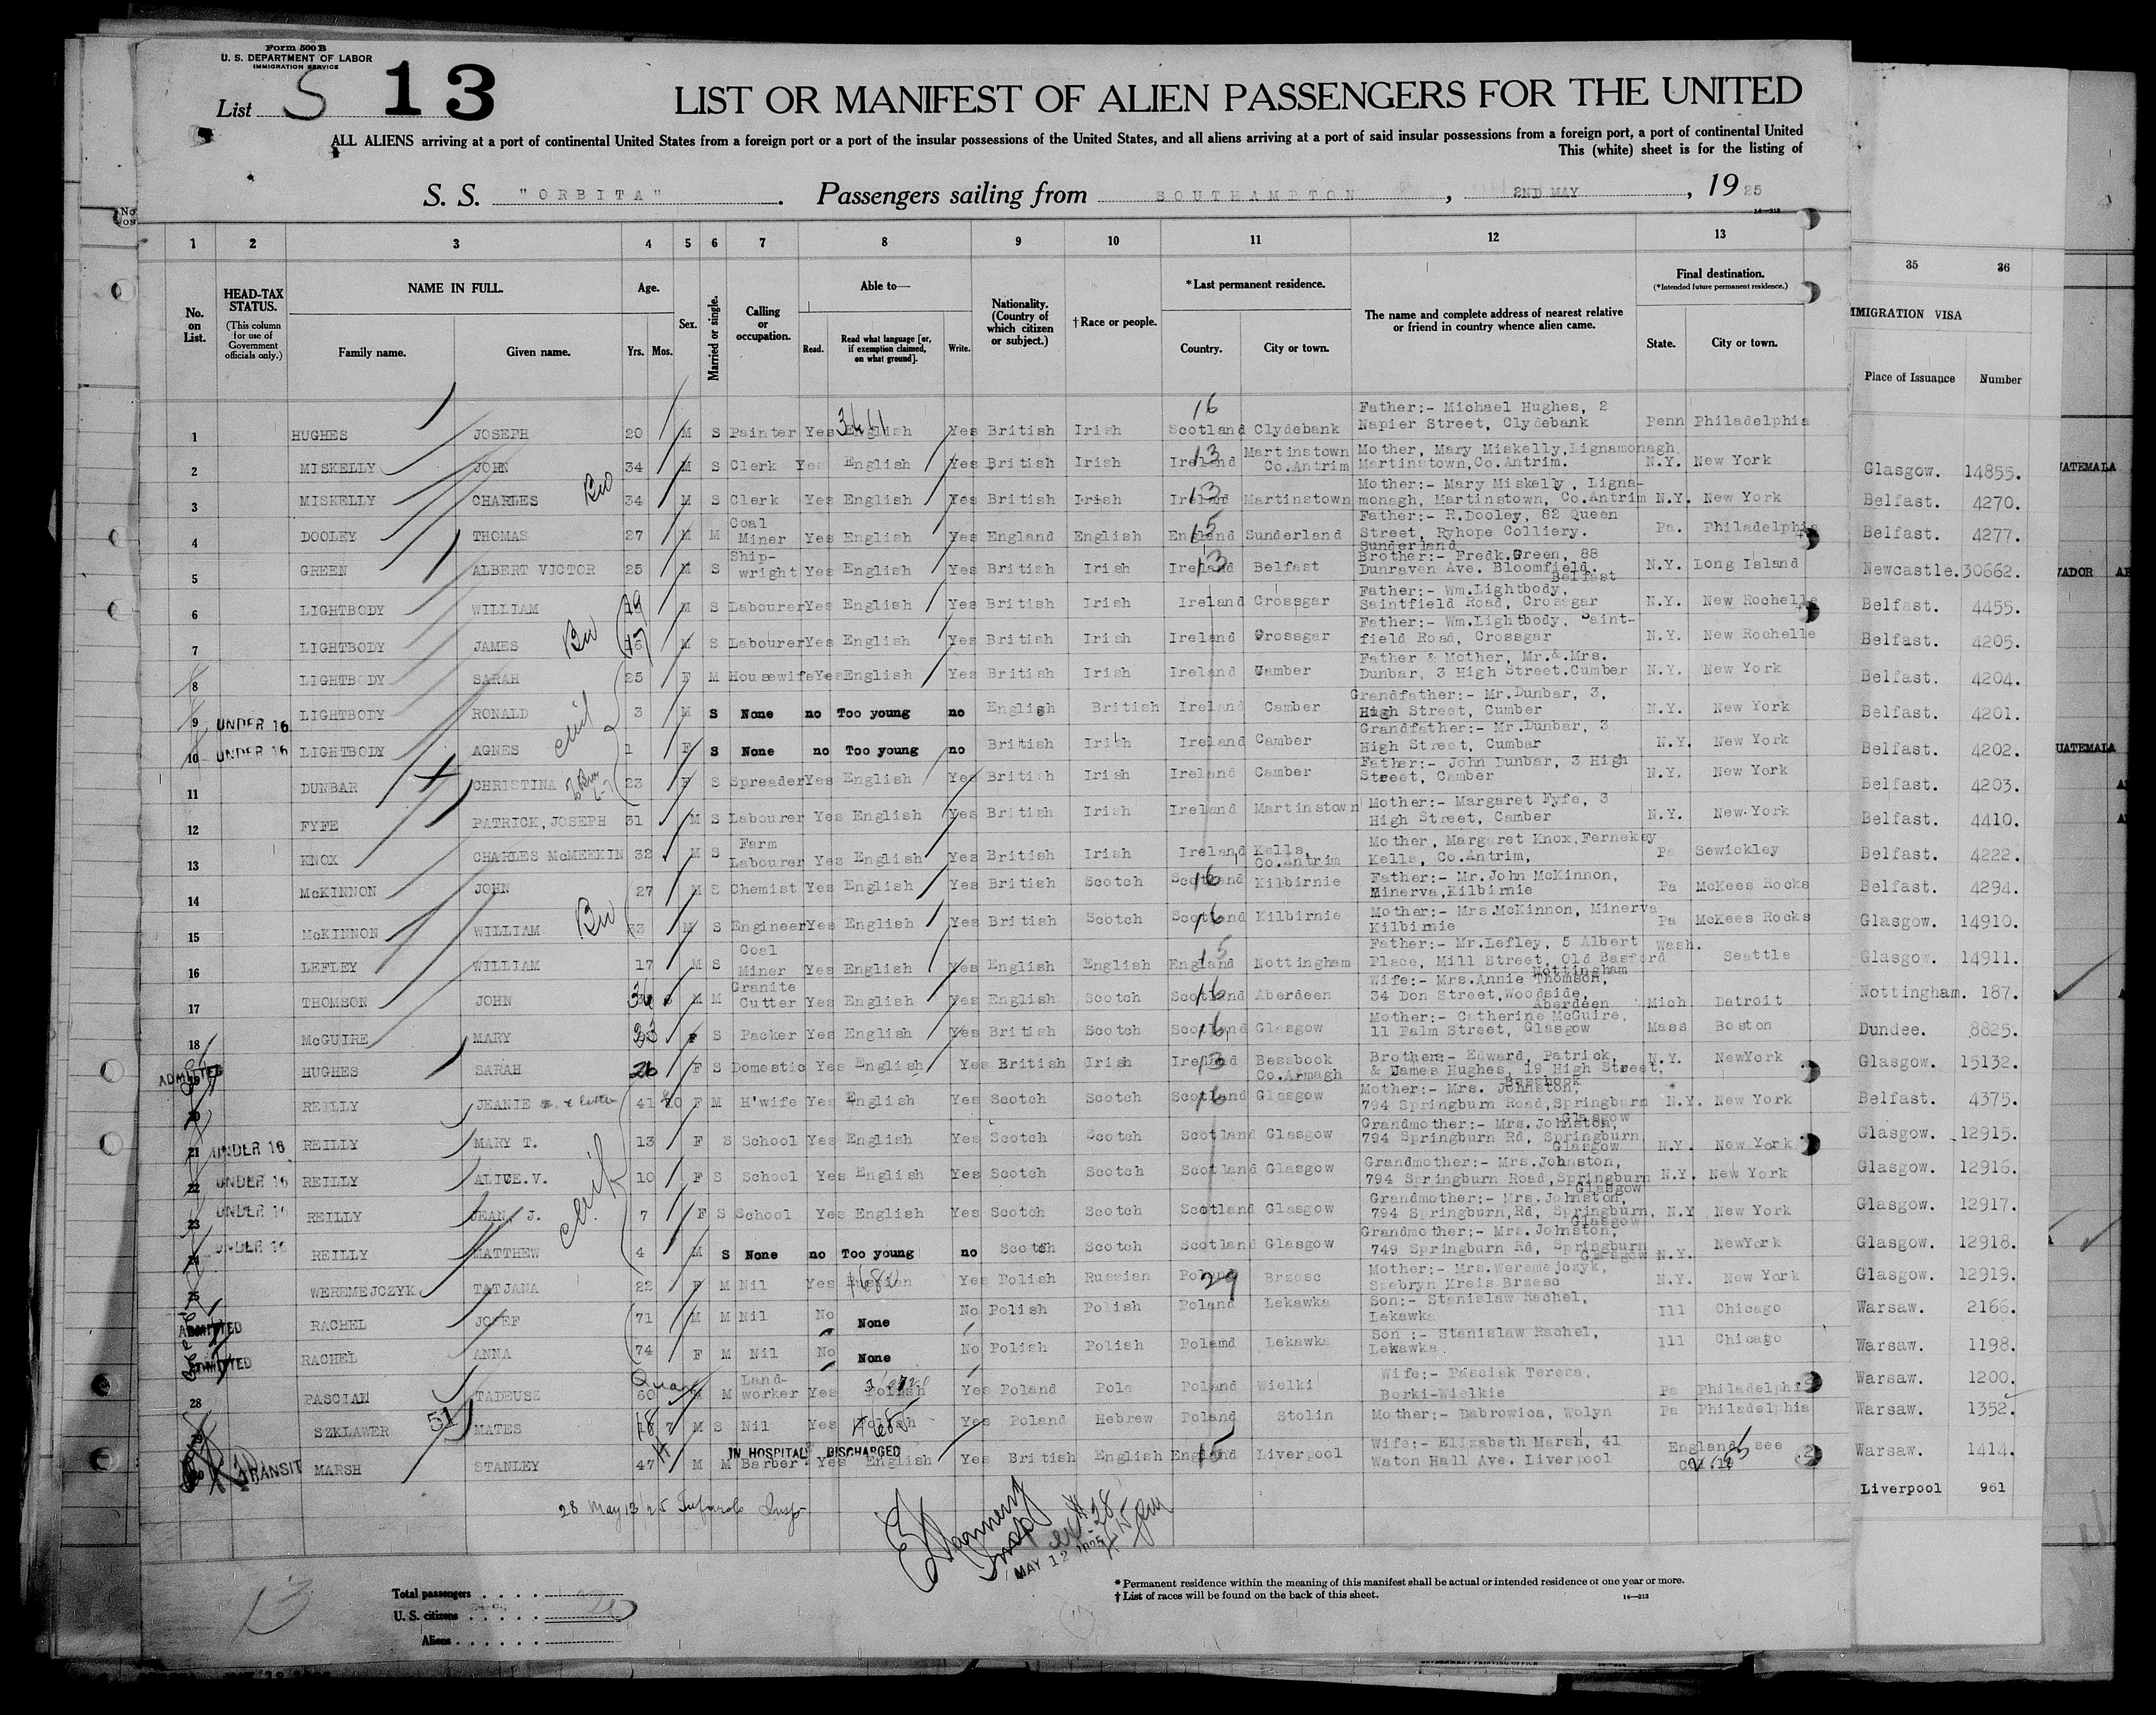 Form 500 B
U. S. DEPARTMENT OF LABOR
IMMIGRATION SERVICE
List S 13
LIST OR MANIFEST OF ALIEN PASSENGERS FOR THE UNITED
ALL ALIENS arriving at a port of continental United States from a foreign port or a port of the insular possessions of the United States, and all aliens arriving at a port of said insular possessions from a foreign port, a port of continental United
This (white) sheet is for the listing of
S. S. "ORBITA". Passengers sailing from SOUTHAMPTON, 2ND MAY, 1925
14—213
1 2 3 4 5 6 7 8 9 10 11 12 13 35 36
No. on List.
HEAD-TAX STATUS.
(This column for use of Government officials only.)
NAME IN FULL.
Family name. Given name.
Age.
Yrs. Mos.
Sex.
Married or single.
Calling or occupation.
Able to—
Read. Read what language [or, if exemption claimed, on what ground]. Write.
Nationality. (Country of which citizen or subject.)
†Race or people.
*Last permanent residence.
Country. City or town.
The name and complete address of nearest relative or friend in country whence alien came.
Final destination.
(*Intended future permanent residence.)
State. City or town.
IMMIGRATION VISA
Place of Issuance Number
1 HUGHES JOSEPH 20 M S Painter Yes English Yes British Irish Scotland Clydebank Father:- Michael Hughes, 2 Napier Street, Clydebank Penn Philadelphia
2 MISKELLY JOHN 34 M S Clerk Yes English Yes British Irish Ireland Martinstown Co.Antrim Mother, Mary Miskelly,Lignamonagh Martinstown,Co.Antrim. N.Y. New York Glasgow. 14855.
3 MISKELLY CHARLES 34 M S Clerk Yes English Yes British Irish Ireland Martinstown Mother:- Mary Miskelly, Ligna-monagh, Martinstown, Co.Antrim N.Y. New York Belfast. 4270.
4 DOOLEY THOMAS 27 M M Coal Miner Yes English Yes England English England Sunderland Father:- R.Dooley, 82 Queen Street, Ryhope Colliery. Sunderland Pa. Philadelphia Belfast. 4277.
5 GREEN ALBERT VICTOR 25 M S Ship-wright Yes English Yes British Irish Ireland Belfast Brother:- Fredk.Green, 88 Dunraven Ave. Bloomfield. Belfast N.Y. Long Island Newcastle. 30662.
6 LIGHTBODY WILLIAM 19 M S Labourer Yes English Yes British Irish Ireland Crossgar Father:- Wm.Lightbody, Saintfield Road, Crossgar N.Y. New Rochelle Belfast. 4455.
7 LIGHTBODY JAMES 17 M S Labourer Yes English Yes British Irish Ireland Crossgar Father:- Wm.Lightbody, Saint-field Road, Crossgar N.Y. New Rochelle Belfast. 4205.
8 LIGHTBODY SARAH 25 F M Housewife Yes English Yes British Irish Ireland Camber Father & Mother, Mr.&.Mrs. Dunbar, 3 High Street.Cumber N.Y. New York Belfast. 4204.
9 UNDER 16 LIGHTBODY RONALD 3 M S None no Too young no English British Ireland Camber Grandfather:- Mr.Dunbar, 3, High Street, Cumber N.Y. New York Belfast. 4201.
10 UNDER 16 LIGHTBODY AGNES 1 F S None no Too young no British Irish Ireland Camber Grandfather:- Mr.Dunbar, 3 High Street, Cumbar N.Y. New York Belfast. 4202.
11 DUNBAR CHRISTINA 23 F S Spreader Yes English Yes British Irish Ireland Camber Father:- John Dunbar, 3 High Street, Camber N.Y. New York Belfast. 4203.
12 FYFE PATRICK,JOSEPH 31 M S Labourer Yes English Yes British Irish Ireland Martinstown Mother:- Margaret Fyfe, 3 High Street, Camber N.Y. New York Belfast. 4410.
13 KNOX CHARLES McMEEKIN 32 M S Farm Labourer Yes English Yes British Irish Ireland Kells, Co.Antrim Mother, Margaret Knox,Fernekey Kells, Co.Antrim, Pa Sewickley Belfast. 4222.
14 McKINNON JOHN 27 M S Chemist Yes English Yes British Scotch Scotland Kilbirnie Father:- Mr.John McKinnon, Minerva,Kilbirnie Pa McKees Rocks Belfast. 4294.
15 McKINNON WILLIAM 33 M S Engineer Yes English Yes British Scotch Scotland Kilbirnie Mother:- Mrs.McKinnon, Minerva Kilbirnie Pa McKees Rocks Glasgow. 14910.
16 LEFLEY WILLIAM 17 M S Coal Miner Yes English Yes English English England Nottingham Father:- Mr.Lefley, 5 Albert Place, Mill Street, Old Basford Nottingham Wash. Seattle Glasgow. 14911.
17 THOMSON JOHN 36 M M Granite Cutter Yes English Yes English Scotch Scotland Aberdeen Wife:- Mrs.Annie Thomson, 34 Don Street,Woodside, Aberdeen Mich Detroit Nottingham. 187.
18 McGUIRE MARY 33 F S Packer Yes English Yes British Scotch Scotland Glasgow Mother:- Catherine McGuire, 11 Palm Street, Glasgow Mass Boston Dundee. 8825.
ADMITTED 19 HUGHES SARAH 26 F S Domestic Yes English Yes British Irish Ireland Bessbook Co.Armagh Brother:- Edward, Patrick, & James Hughes, 19 High Street. Bessbook N.Y. NewYork Glasgow. 15132.
20 REILLY JEANIE 41 F M H'wife Yes English Yes Scotch Scotch Scotland Glasgow Mother:- Mrs. Johnston, 794 Springburn Road,Springburn Glasgow N.Y. New York Belfast. 4375.
21 UNDER 16 REILLY MARY T. 13 F S School Yes English Yes Scotch Scotch Scotland Glasgow Grandmother:- Mrs.Johnston, 794 Springburn Rd, Springburn Glasgow N.Y. New York Glasgow. 12915.
22 UNDER 16 REILLY ALICE.V. 10 F S School Yes English Yes Scotch Scotch Scotland Glasgow Grandmother:- Mrs.Johnston, 794 Springburn Road,Springburn Glasgow N.Y. New York Glasgow. 12916.
23 UNDER 16 REILLY JEAN J. 7 F S School Yes English Yes Scotch Scotch Scotland Glasgow Grandmother:- Mrs.Johnston, 794 Springburn,Rd, Springburn, Glasgow N.Y New York Glasgow. 12917.
24 UNDER 16 REILLY MATTHEW 4 M S None no Too young no Scotch Scotch Scotland Glasgow Grandmother:- Mrs.Johnston, 749 Springburn Rd, Springburn Glasgow N.Y. NewYork Glasgow. 12918.
25 WEREMEJCZYK TATJANA 22 F M Nil Yes Russian Yes Polish Russian Poland Brzesc Mother:- Mrs.Weremejczyk, Szebryn Kreis Brzesc N.Y. New York Glasgow. 12919.
ADMITTED RACHEL JOSEF 71 M M Nil No None No Polish Polish Poland Lekawka Son:- Stanislaw Rachel, Lekawka Ill Chicago Warsaw. 2166.
ADMITTED RACHEL ANNA 74 F M Nil No None No Polish Polish Poland Lekawka Son :- Stanislaw Rachel, Lekawka Ill Chicago Warsaw. 1198.
28 PASCIAH TADEUSZ 60 M M Land-worker Yes Polish Yes Poland Pole Poland Wielki Wife:- Pasciak Teresa, Borki-Wielkie Pa Philadelphia Warsaw. 1200.
SZKLAWER MATES 18 7 M S Nil Yes Polish Yes Poland Hebrew Poland Stolin Mother:- Dabrowica, Wolyn Pa Philadelphia Warsaw. 1352.
IN HOSPITAL DISCHARGED
30 TRANSIT MARSH STANLEY 47 M M Barber Yes English Yes British English England Liverpool Wife:- Elizabeth Marsh, 41 Waton Hall Ave. Liverpool England see Warsaw. 1414.
Liverpool 961
28 May 13/25
MAY 12 1925
13
Total passengers
U. S. citizens
Aliens
* Permanent residence within the meaning of this manifest shall be actual or intended residence of one year or more.
† List of races will be found on the back of this sheet.
14—213